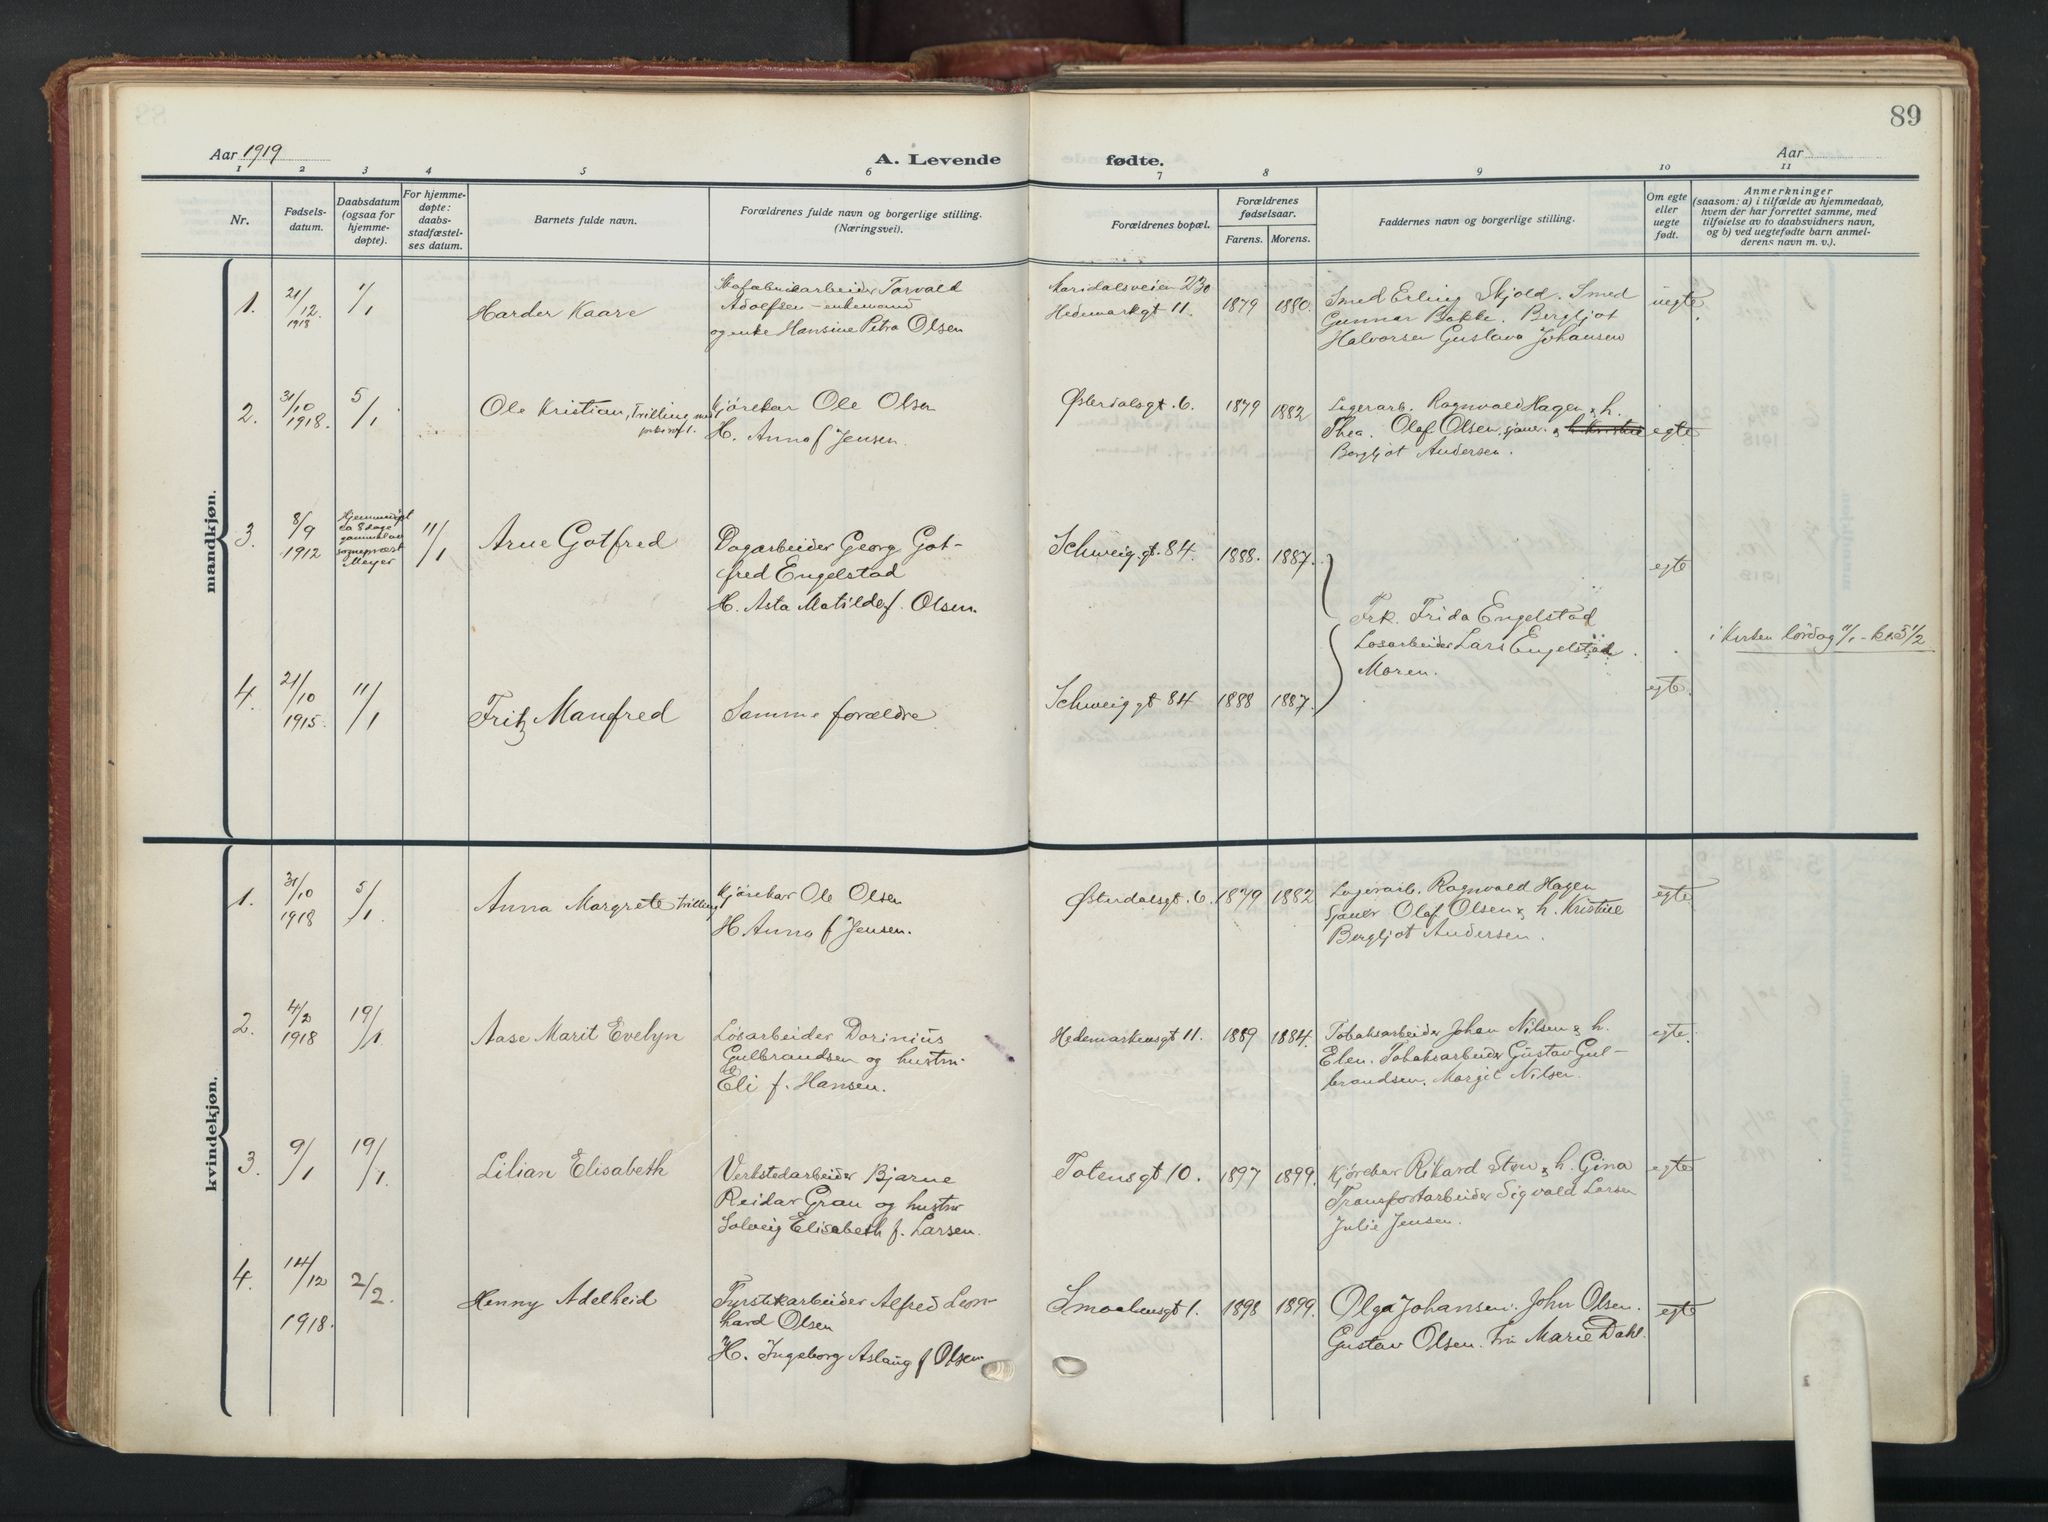 89
Aar 1919
A. Levende
fødte.
Aar
1 2 3 4 5 6 7 8 9 10 11
Nr.
Fødsels-
datum.
Daabsdatum
(ogsaa for
hjemme-
døpte).
For hjemme-
døpte:
daabs-
stadfæstel-
ses datum.
Barnets fulde navn.
Forældrenes fulde navn og borgerlige stilling.
(Næringsvei).
Forældrenes bopæl.
Forældrenes
fødselsaar.
Farens. Morens.
Faddernes navn og borgerlige stilling.
Om egte
eller
uegte
født.
Anmerkninger
(saasom: a) i tilfælde av hjemmedaab,
hvem der har forrettet samme, med
tilføielse av to daabsvidners navn,
og b) ved uegtefødte barn anmel-
derens navn m. v.).
mandkjøn.
1.
21/12
1918
1/1
Harder Kaare
Skofabrikarbeider Torvald
Adolfsen - enkemand
og enke Hansine Petra Olsen
Maridalsveien 230
Hedemarkgt 11.
1879
1880.
Smed Erling Skjold. Smed
Gunnar Bakke. Bergljot
Halvorsen Gustava Johansen
uegte
2.
31/10
1918.
5/1
Ole Kristian, Trilling med
Kjørekar Ole Olsen
H. Anna f Jensen.
Østerdalsgt. 6.
1879
1882
Lagerarb. Ragnvald Hagen & h.
Thea. Olaf Olsen, sjauer. & h. Kristine
Bergljot Andersen.
egte
3.
8/9
1912
Hjemmedøpt
ca 8 dage
gammel av
sogneprest
Meyer
11/1
Arne Gotfred
Dagarbeider Georg Got-
fred Engelstad
H. Asta Matilde f. Olsen.
Schweig. gt. 84.
1888.
1887.
egte
Frk. Frida Engelstad
Løsarbeider Lars Engelstad
Moren.
i Kirken lørdag 11/1 - kl 5 1/2
4.
21/10
1915.
11/1
Fritz Manfred
Samme forældre
Schweig gt 84
1888
1887.
egte.
kvindekjøn.
1.
31/10
1918
5/1
Anna Margrete trilling
Kjørekar Ole Olsen
H Anna f Jensen.
Østerdalsgt. 6.
1879
1882
Lagerarb. Ragnvald Hagen
Sjauer Olaf Olsen & h. Kristine
Bergljot Andersen.
egte
2.
4/2
1918
19/1
Aase Marit Evelyn
Løsarbeider Dorinius
Gulbrandsen og hustru
Eli f. Hansen.
Hedemarkensgt 11.
1889
1884.
Tobaksarbeider Johan Nilsen & h.
Elen. Tobaksarbeider Gustav Gul-
brandsen. Margit Nilsen.
egte.
3.
9/1
19/1
Lilian Elisabeth
Verkstedarbeider Bjarne
Reidar Gran og hustru
Solveig Elisabeth f. Larsen.
Totensgt 10.
1897
1899.
Kjørekar Rikard Sten & h. Gina
Transportarbeider Sigvald Larsen
Julie Jensen.
egte
4.
14/12
1918.
2/2.
Henny Adelheid
Fyrstikarbeider Alfred Leon-
hard Olsen
H. Ingeborg Aslaug f Olsen
Smaalensgt 1.
1898
1899.
Olga Johansen. John Olsen.
Gustav Olsen. Fru Marie Dahl.
egte